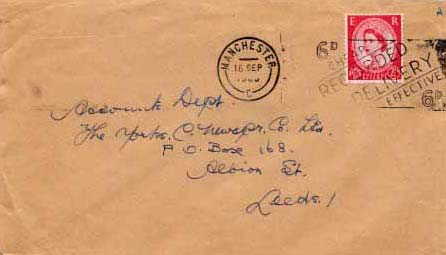 E R
MANCHESTER
16 SEP
C
6D
CHEAP
RECORDED
DELIVERY
EFFECTIVE
6D
Accounts Dept.
The Yorks. C. Newspr. Co. Ltd.
P. O. Box 168.
Albion St.
Leeds. 1